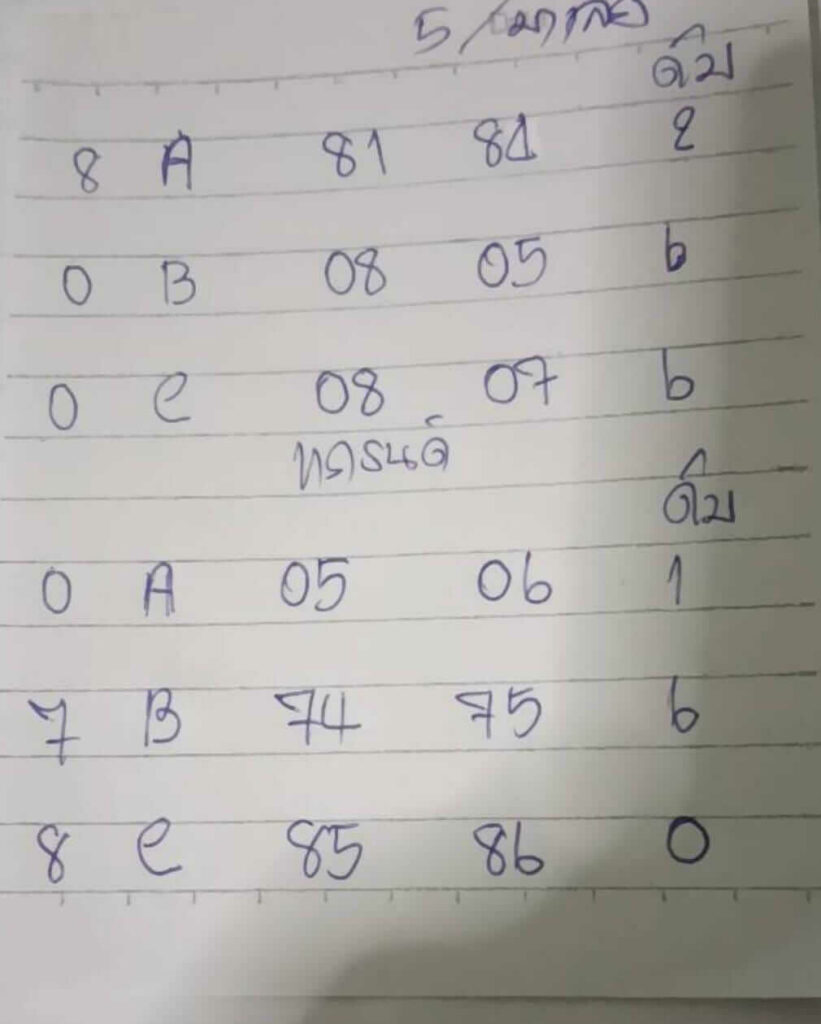 5 / มาเลย์
ดับ
8 A 81 84 2
0 B 08 05 6
0 C 08 07 6
ดับ
0 A 05 06 1
7 B 74 75 6
8 C 85 86 0